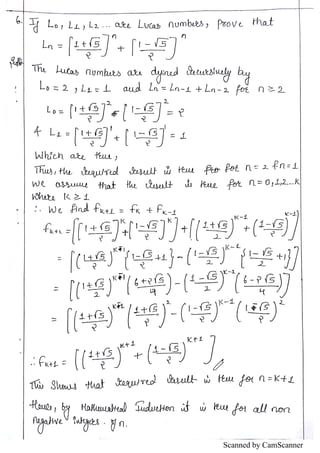 6. If L₀, L₁, L₂ ... are Lucas numbers, prove that
Ln = [1+√5 / 2]^n + [1-√5 / 2]^n
The Lucas numbers are defined recursively by
L₀ = 2, L₁ = 1 and Ln = Ln-1 + Ln-2 for n ≥ 2
L₀ = [1+√5 / 2]^2 + [1-√5 / 2]^2 = 2
& L₁ = [1+√5 / 2]^1 + [1-√5 / 2]^1 = 1
Which are true,
Thus, the required result is true for n=2 & n=1
We assume that the result is true for n=0,1,2...K
Where K ≥ 1
∴ We find fK+1 = fK + fK-1
fK+1 = [[1+√5 / 2]^K + [1-√5 / 2]^K] + [(1+√5 / 2)^K-1 + (1-√5 / 2)^K-1]
= [(1+√5 / 2)^K-1 {1+√5 / 2 +1} - (1-√5 / 2)^K-1 {1-√5 / 2 +1}]
= [(1+√5 / 2)^K-1 (6+2√5 / 4) - (1-√5 / 2)^K-1 (6-2√5 / 4)]
= [(1+√5 / 2)^K-1 (1+√5 / 2)^2 - (1-√5 / 2)^K-1 (1-√5 / 2)^2
∴ fK+1 = [(1+√5 / 2)^K+1 + (1-√5 / 2)^K+1]
This shows that required result is true for n=K+1
Hence, by Mathematical Induction it is true for all non
negative integer of n.
Scanned by CamScanner